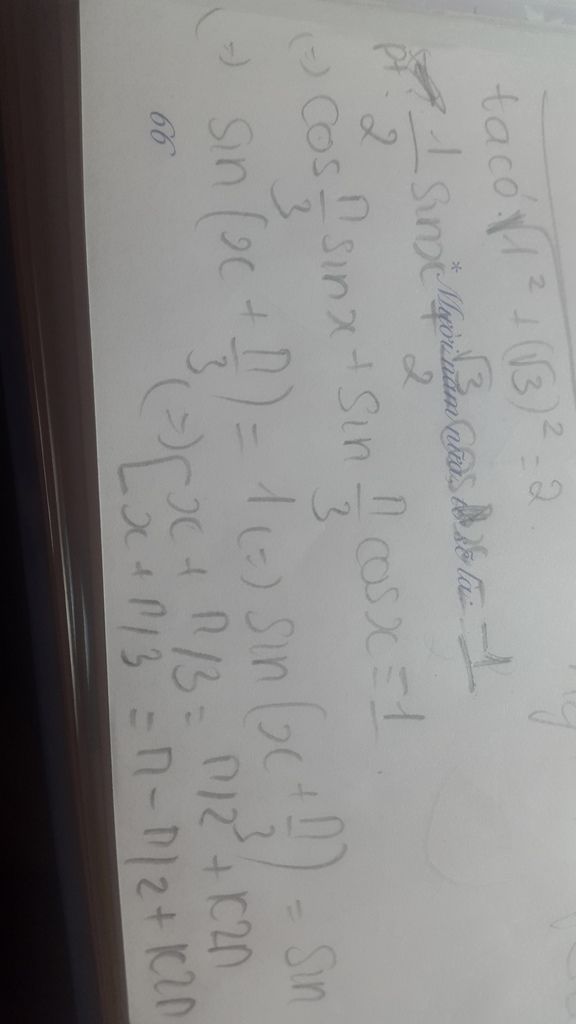 ta có: √1² + (√3)² = 2.
pt: 1/2 sinx + √3/2 cosx = 1
* Mười năm nữa
(=) cos π/3 sinx + sin π/3 cosx = 1
(=) sin (x + π/3) = 1 (=) sin (x + π/3) = sin
(=) [ x + π/3 = π/2 + k2π
[ x + π/3 = π - π/2 + k2π
66